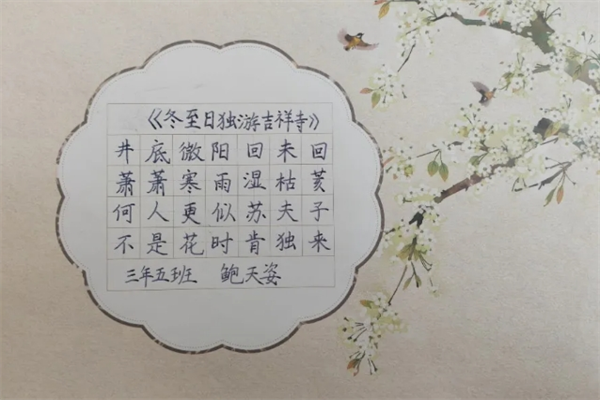 《冬至日独游吉祥寺》
井底微阳回未回
萧萧寒雨湿枯荄
何人更似苏夫子
不是花时肯独来
三年五班 鲍天姿